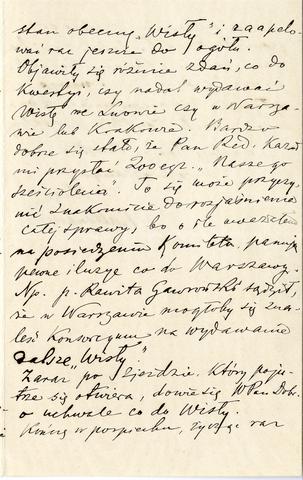 stan obecny „Wisły” i zaapelo-
wać raz jeszcze do ogółu.
Objawiły się różnice zdań, co do
kwestyi, czy nadal wydawać
Wisłę we Lwowie czy w Warsza-
wie lub Krakowie. Bardzo
dobrze się stało, że Pan Red. kazał
mi przysłać 200 egz. „Naszego
sześciolecia”. To się może przyczy-
nić znakomicie do rozjaśnienia
całej sprawy, bo o ile uważałem
na posiedzeniu Komitetu, panują
pewne iluzye co do Warszawy.
Np. p. Rawita Gawroński sądził,
że w Warszawie mogłoby się zna-
leść konsorcyum na wydawanie
dalsze „Wisły”.
Zaraz po Zjeździe, który poju-
trze się otwiera, doniosę WPan Dob.
o uchwale co do Wisły.
Kończę w pospiechu, życząc raz